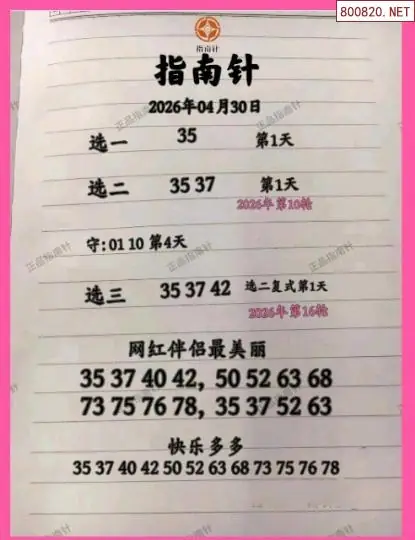 800820.NET
指南针
指南针
2026年04月30日
选一 35 第1天
选二 35 37 第1天
2026年第10轮
守:01 10 第4天
选三 35 37 42 选二复式第1天
2026年第16轮
网红伴侣最美丽
35 37 40 42, 50 52 63 68
73 75 76 78, 35 37 52 63
快乐多多
35 37 40 42 50 52 63 68 73 75 76 78
正品指南针
正品指南针
正品指南针
正品指南针